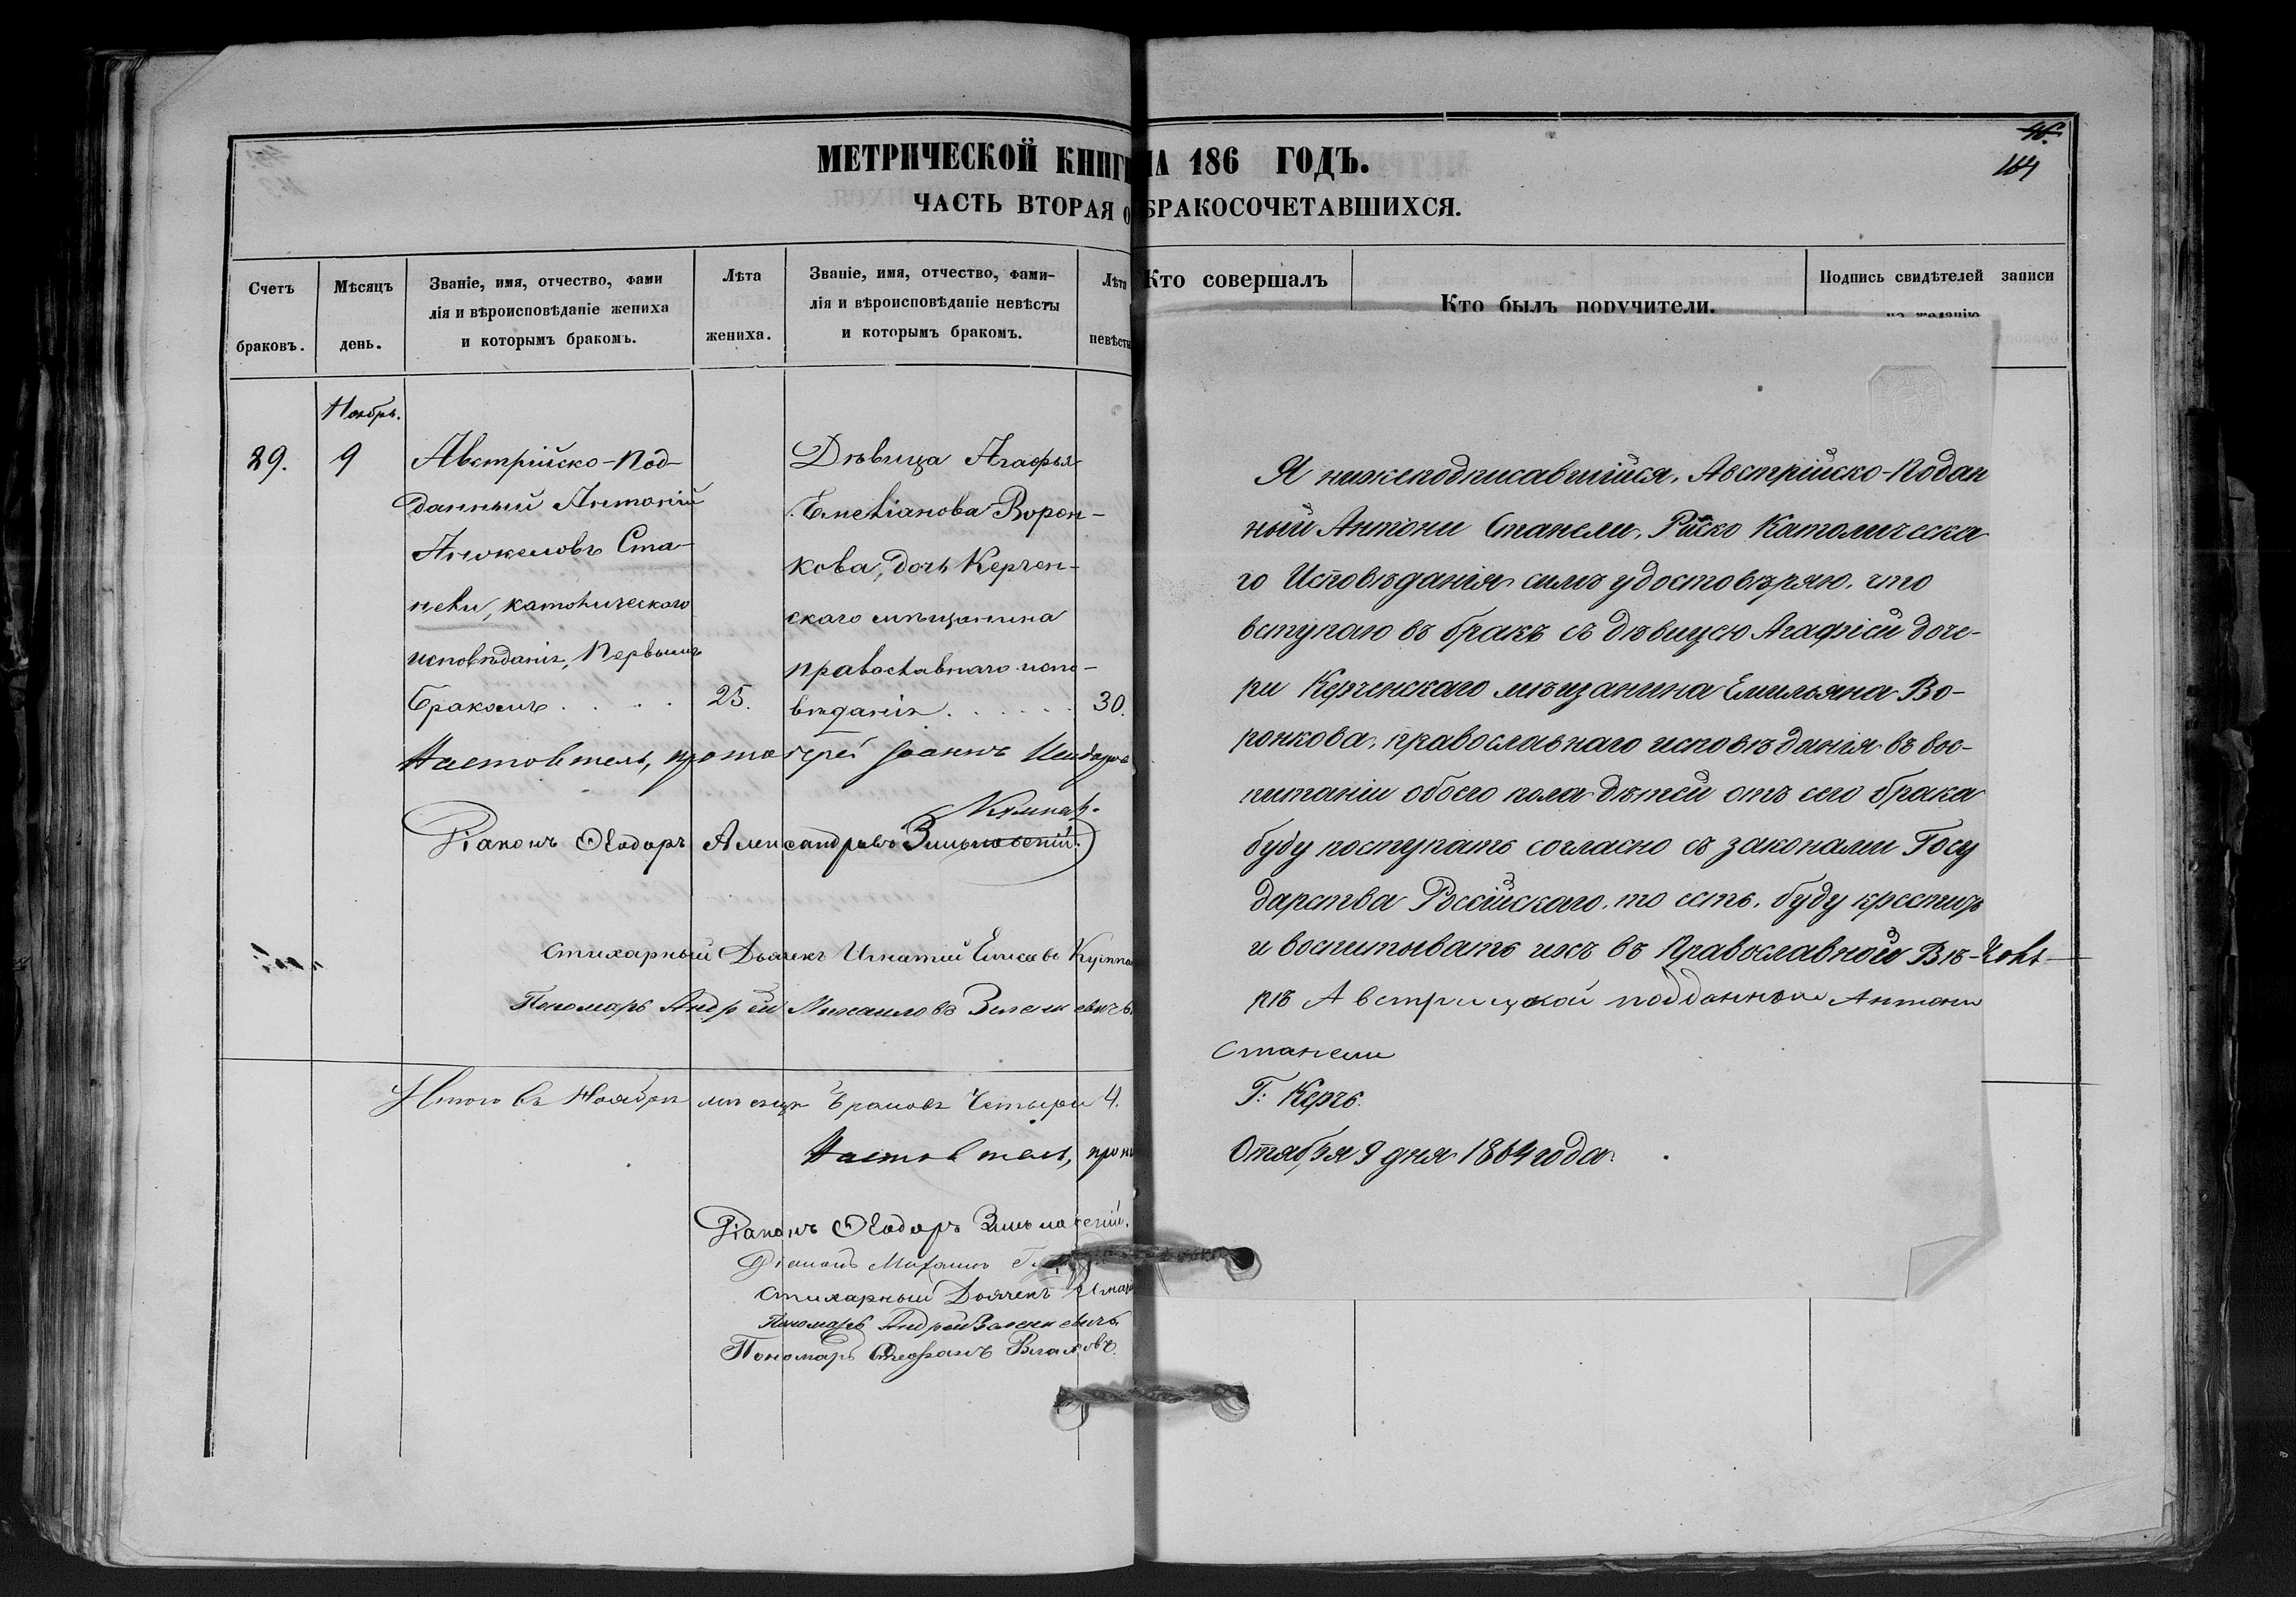 МЕТРИЧЕСКОЙ КНИГИ НА 186 ГОДЪ.
ЧАСТЬ ВТОРАЯ О БРАКОСОЧЕТАВШИХСЯ.
164
Счетъ браковъ.
Мѣсяцъ день.
Званіе, имя, отчество, фами
лія и вѣроисповѣданіе жениха
и которымъ бракомъ.
Лѣта жениха.
Званіе, имя, отчество, фами-
лія и вѣроисповѣданіе невѣсты
и которымъ бракомъ.
Лѣта невѣсты
Ноябрь.
29.
9
Австрійско-Под-
данный Антоній
Анжеловъ Ста-
нели, католическаго
исповѣданія, Первымъ
бракомъ . . . .
25.
Дѣвица Агафья
Емеліанова Ворон-
кова, дочь Керчен-
скаго мѣщанина
православнаго испо-
вѣданія . . . . . .
30.
Настоятель, протоіерей Іоаннъ
Діаконъ Ѳеодоръ Александровъ
Стихарный Дьячекъ Игнатій Елисеевъ
Пономарь Андрей Михаиловъ
Итого въ Ноябрѣ мѣсяцѣ браковъ Четыре 4.
Настоятель, про
Діаконъ Ѳеодоръ
Діаконъ Михаилъ
Стихарный Дьячекъ
Пономарь Андрей
Пономарь Стефанъ
Кто совершалъ
Кто былъ поручители.
Подпись свидѣтелей записи
по желанію
Я нижеподписавшійся, Австрійско-Подан
ный Антони Станели, Римско Католическа
го Исповѣданія симъ удостовѣряю, что
вступаю въ бракъ съ дѣвицею Агафіей доче-
ри Керченскаго мѣщанина Емильяна Во-
ронкова, православнаго исповѣданія въ вос-
питаніи обоего пола дѣтей отъ сего брака
буду поступать согласно съ законами Госу
дарства Россійскаго, то есть, буду крестить
и воспитывать ихъ въ Православной Вѣ-
рѣ Австрицкой подданный Антони
Станели
Г: Керчь.
Октября 9 дня 1864 года.